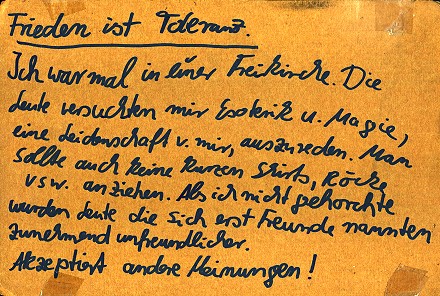 Frieden ist Toleranz.
Ich war mal in einer Freikirche. Die
Leute versuchten mir Esoterik u. Magie,
eine Leidenschaft v. mir, auszureden. Man
sollte auch keine kurzen Shirts, Röcke
usw. anziehen. Als ich nicht gehorchte
wurden Leute die sich erst Freunde nannten
zunehmend unfreundlicher.
Akzeptiert andere Meinungen!